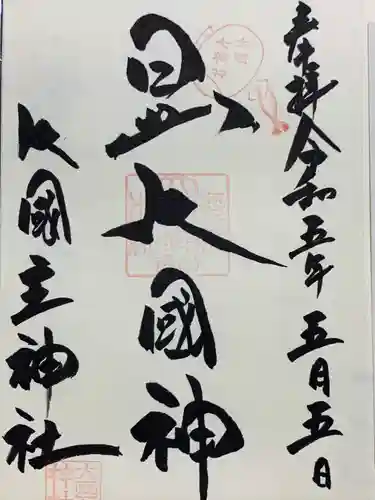 奉拝 令和五年 五月五日
日出大國神
大國主神社